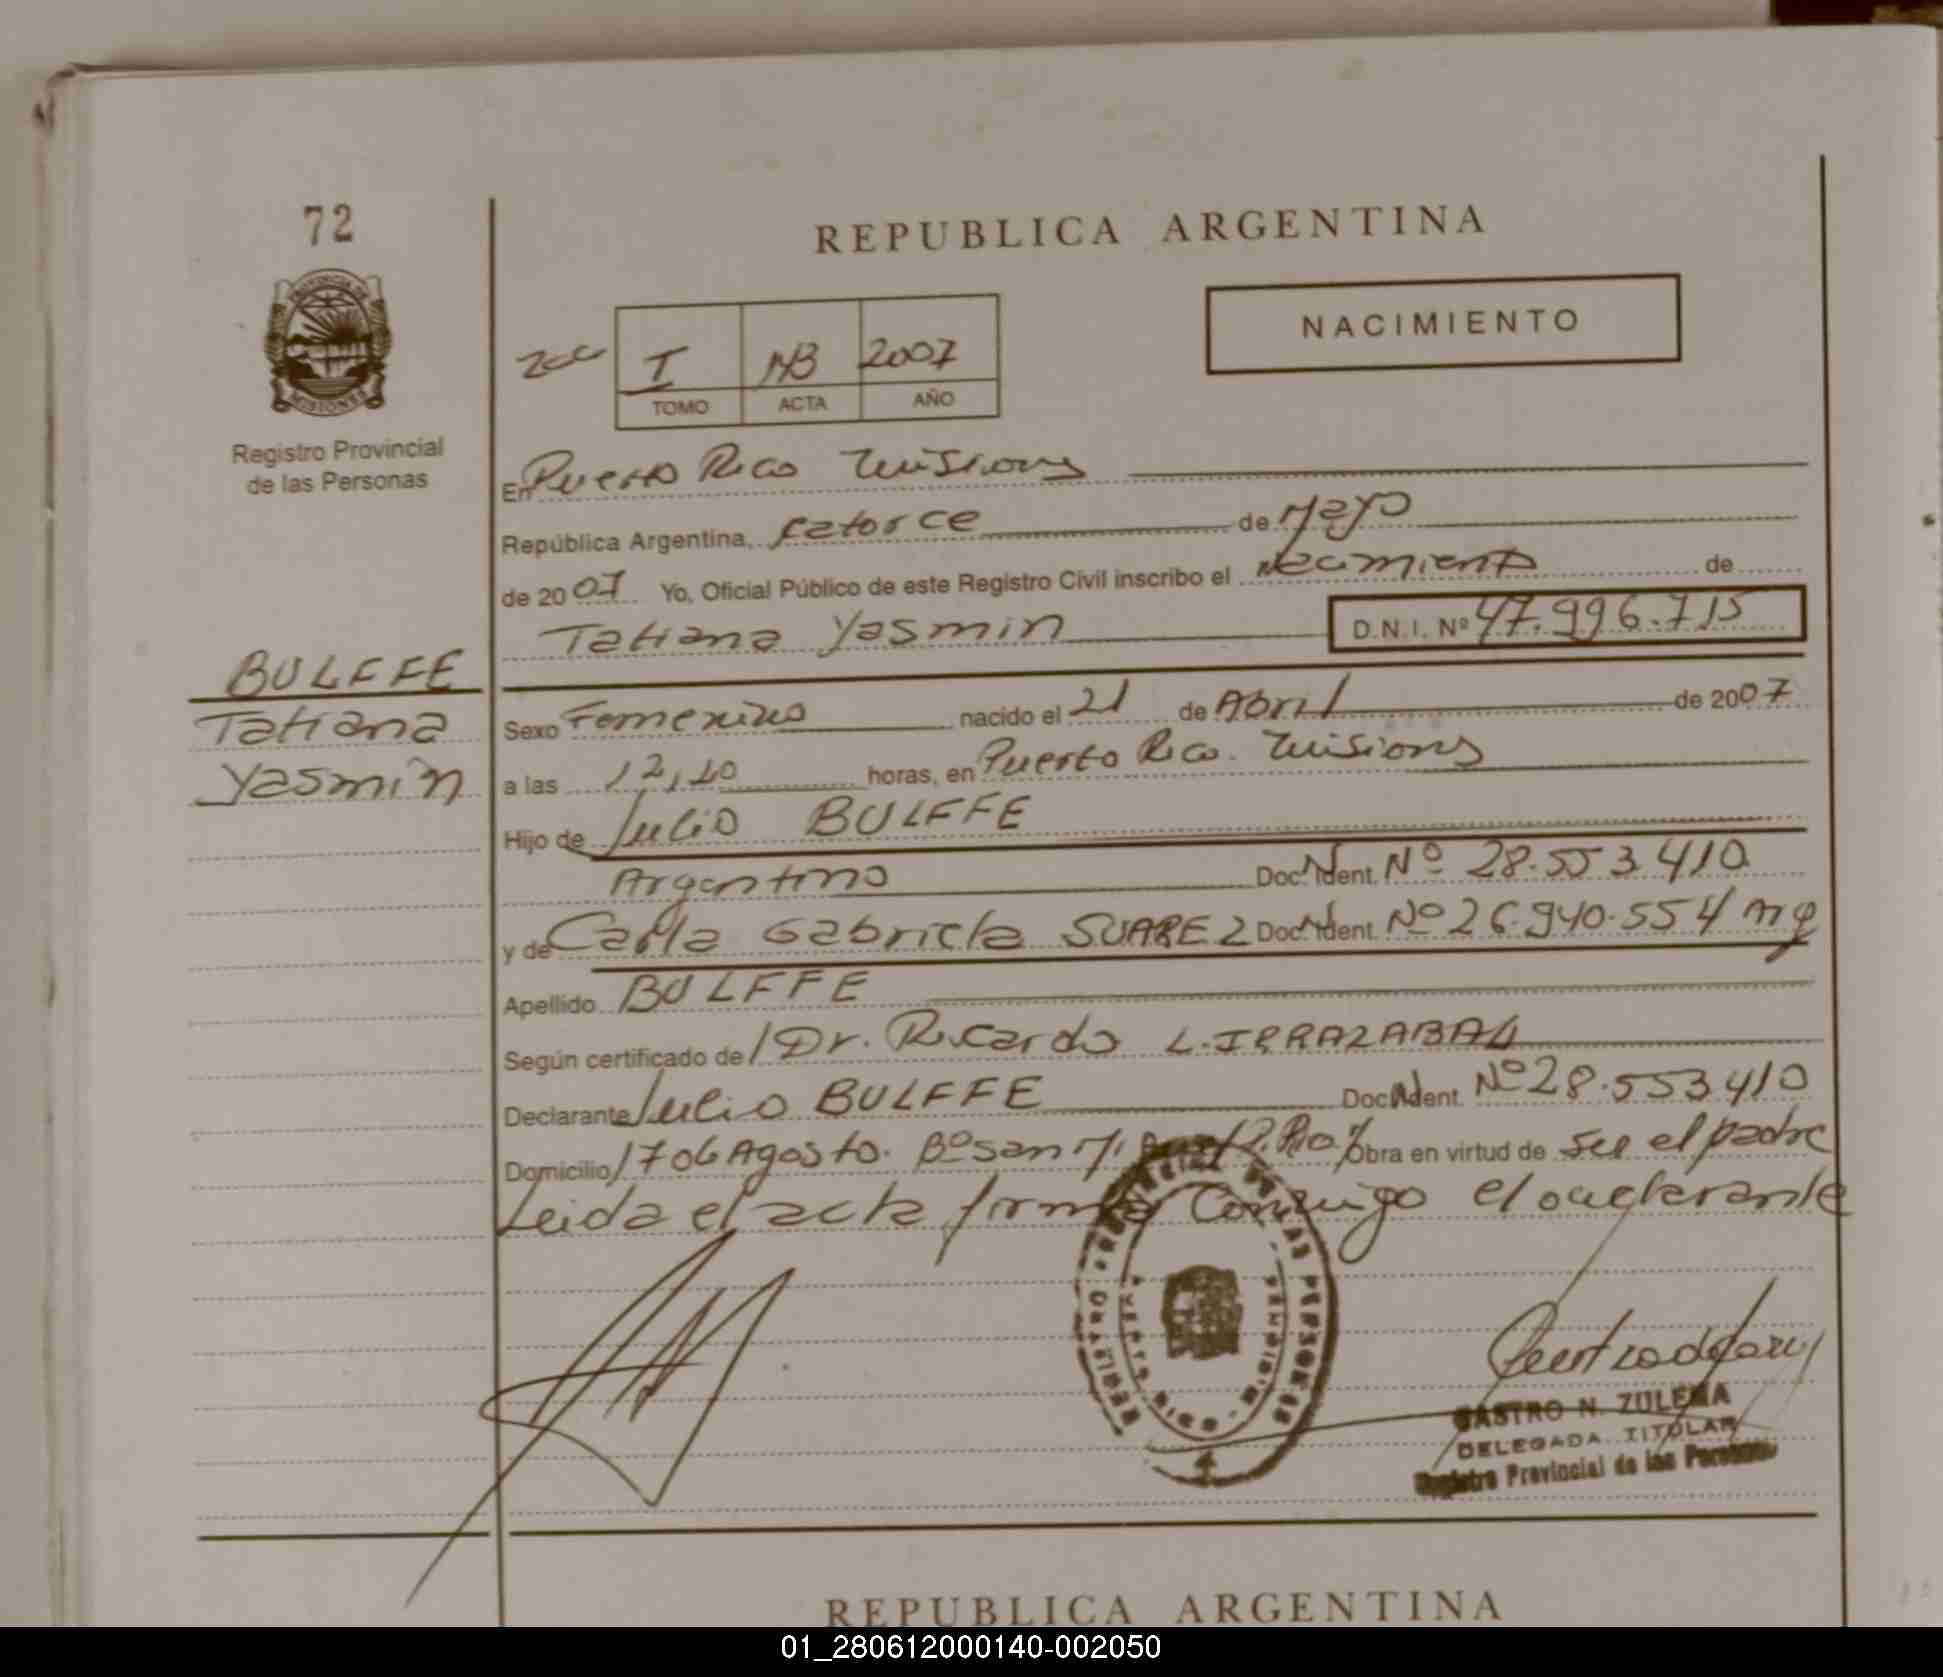 72
REPUBLICA ARGENTINA
PROVINCIA DE
MISIONES
NACIMIENTO
I 143 2007
TOMO ACTA AÑO
Registro Provincial
de las Personas
En Puerto Rico Misiones
República Argentina, catorce de Mayo
de 2007 Yo, Oficial Público de este Registro Civil inscribo el Nacimiento de
Tatiana Yasmin D.N.I. Nº 47.996.715
BULFFE
Tatiana
Yasmin
Sexo Femenino nacido el 21 de Abril de 2007
a las 12,10 horas, en Puerto Rico. Misiones
Hijo de Julio BULFFE
Argentino Doc. Ident. Nº 28.553.410
y de Carla Gabriela SUAREZ Doc. Ident. Nº 26.940.554 Arg
Apellido BULFFE
Según certificado de Dr. Ricardo L. IRRAZABAL
Declarante Julio BULFFE Doc. Ident. Nº 28.553410
Domicilio 17 de Agosto. Bº San P. Rio. Obra en virtud de ser el padre
Leida el acta firma Conmigo el declarante
CASTRO N. ZULEMA
DELEGADA TITULAR
Registro Provincial de las Personas
REPUBLICA ARGENTINA
01_280612000140-002050